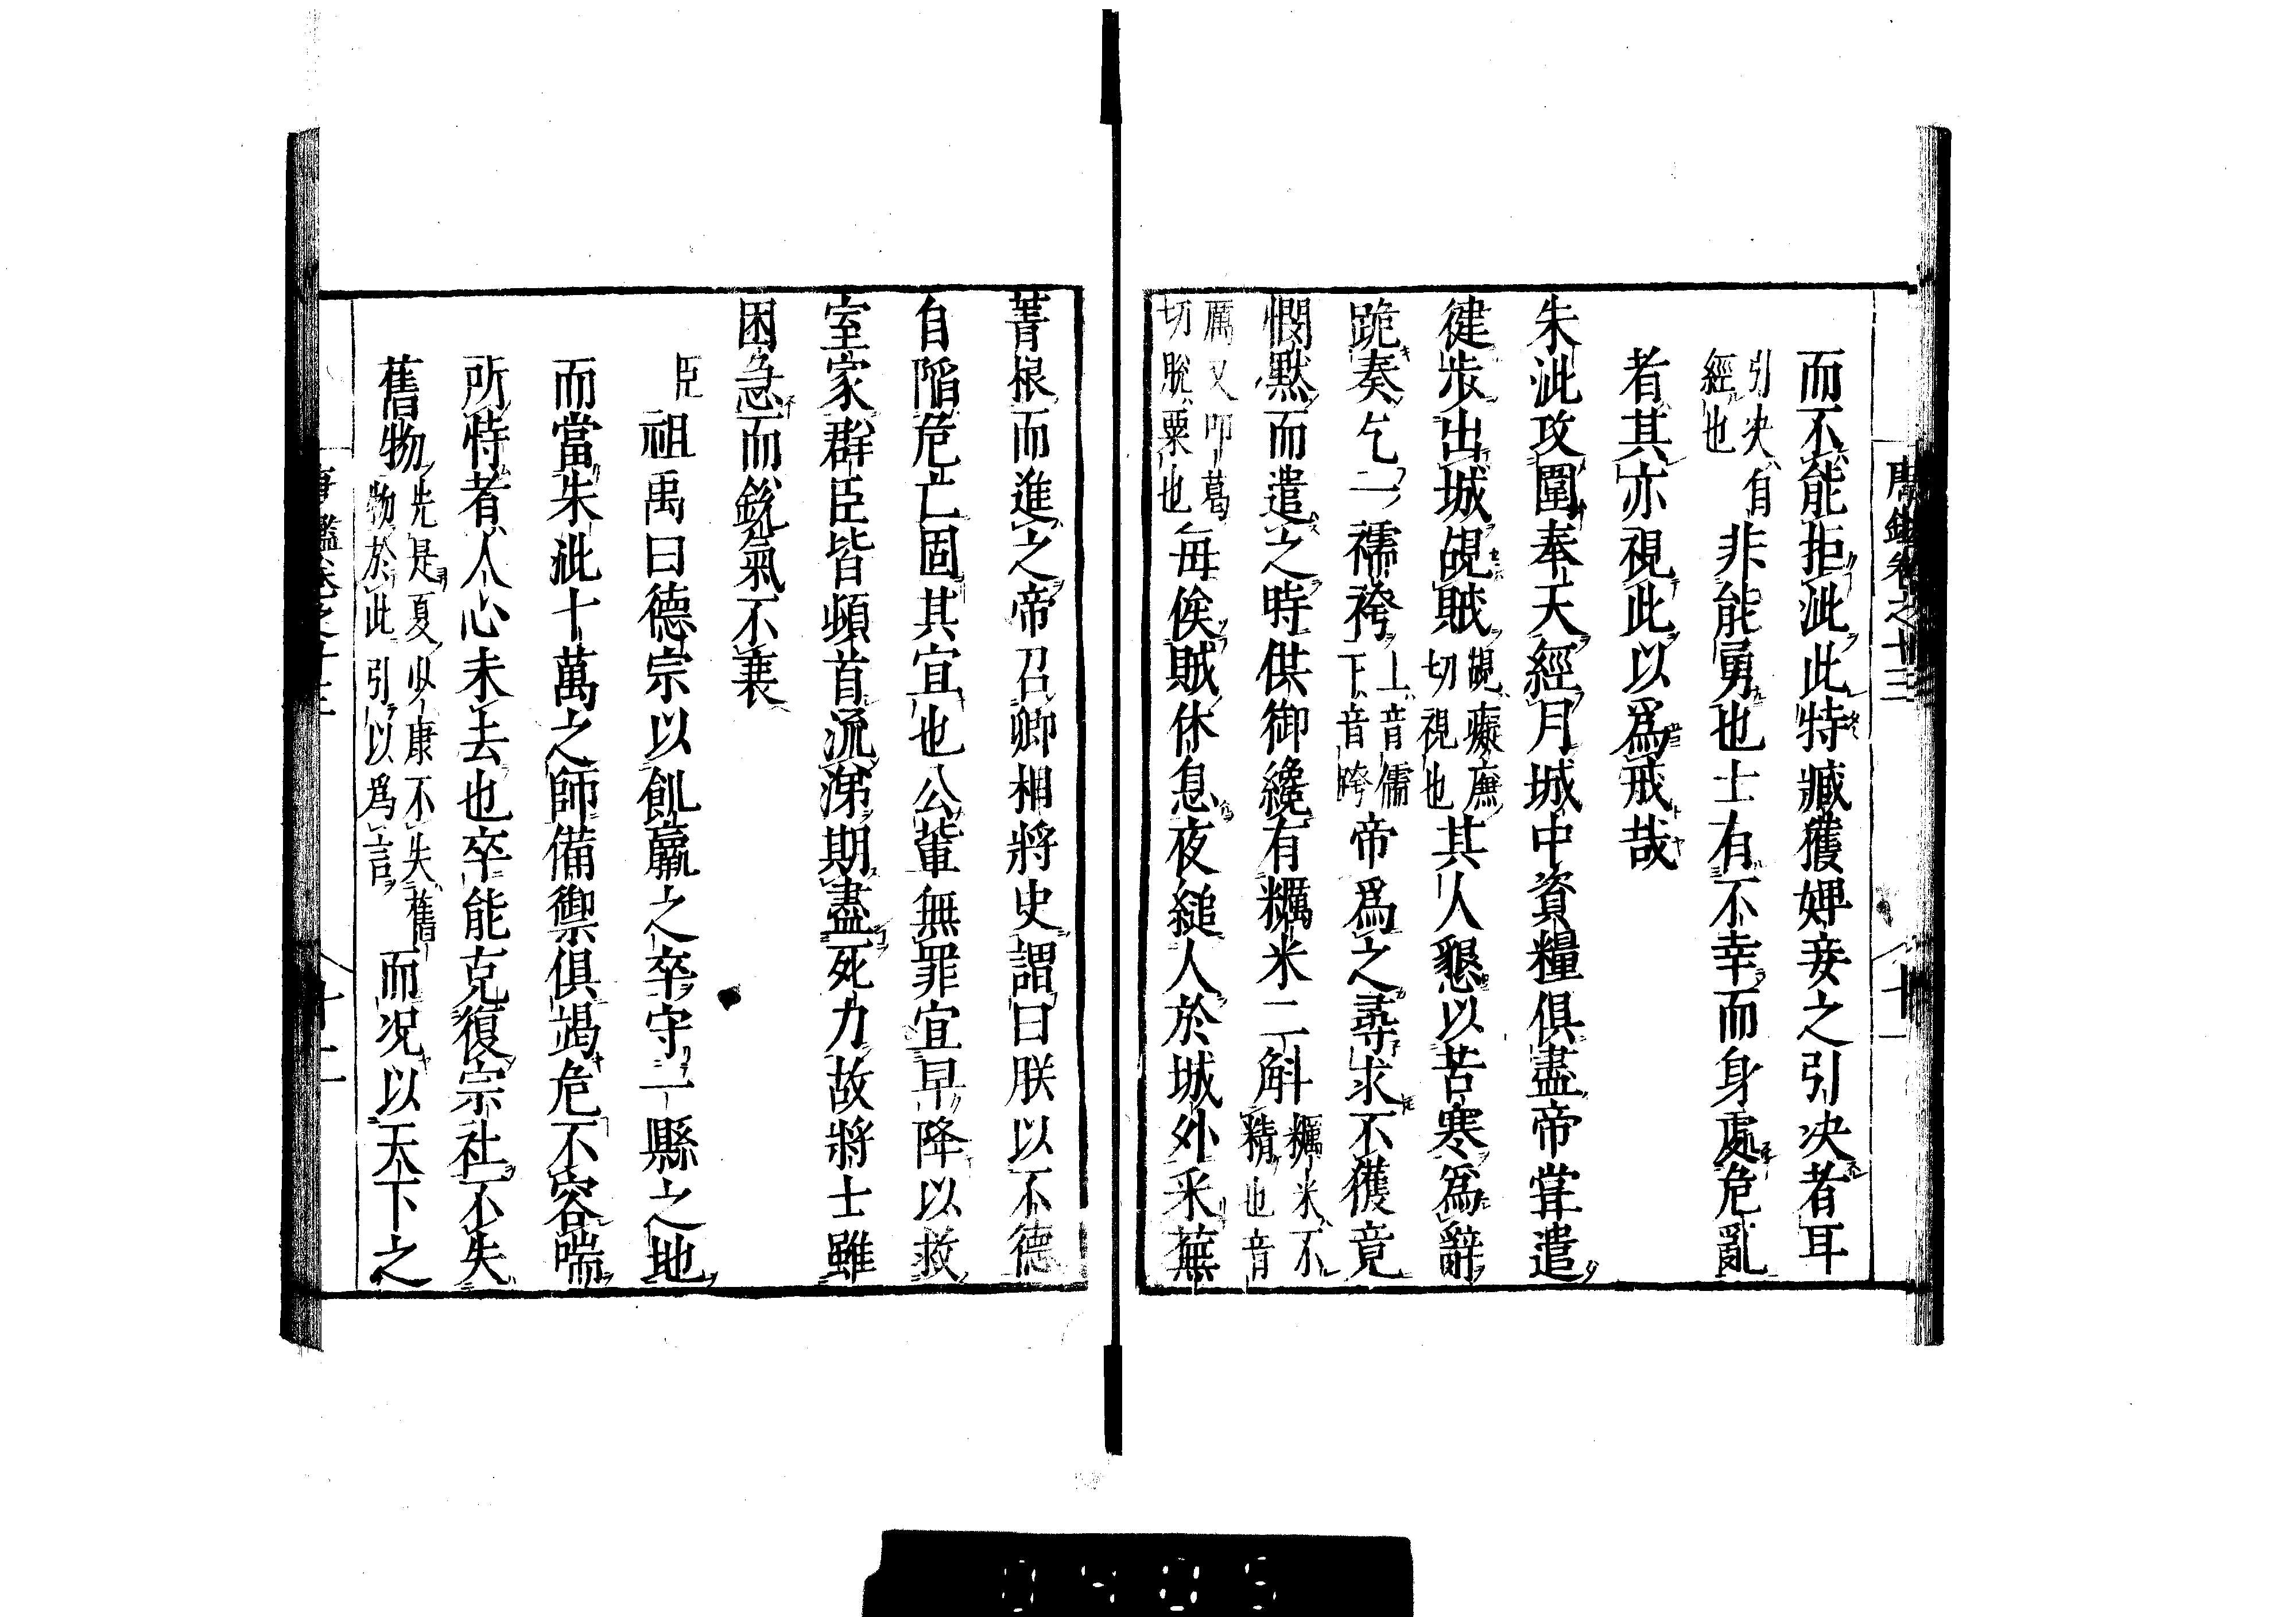 唐鑑卷之十三
十一
而不能拒泚此特臧獲婢妾之引決者耳
引決自
經也
非能勇也士有不幸而身處危亂
者其亦視此以爲戒哉
朱泚攻圍奉天經月城中資糧俱盡帝甞遣
健步出城覘賊
覘癡廉
切視也
其人懇以苦寒爲辭
跪奏乞一襦袴
上音儒
下音胯
帝爲之尋求不獲竟
憫默而遣之時供御纔有糲米二斛
糲米不
精也音
厲又叩葛
切脫粟也
每俟賊休息夜縋人於城外采蕪
菁根而進之帝召卿相將吏謂曰朕以不德
自陷危亡固其宜也公軰無罪宜早降以救
室家群臣皆頓首流涕期盡死力故將士雖
困急而銳氣不衰
臣祖禹曰德宗以飢羸之卒守一縣之地
而當朱泚十萬之師備禦俱竭危不容喘
所恃者人心未去也卒能克復宗社不失
舊物
先是夏少康不失舊
物於此引以爲言
而况以天下之
唐鑑卷之十三
十二
0405